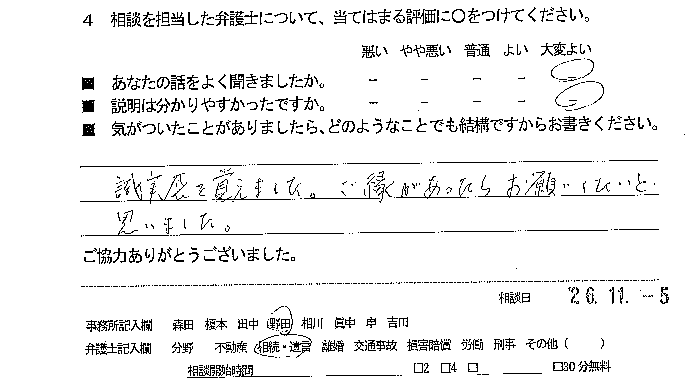 4 相談を担当した弁護士について、当てはまる評価に○をつけてください。
悪い やや悪い 普通 よい 大変よい
■ あなたの話をよく聞きましたか。 － － － － －
■ 説明は分かりやすかったですか。 － － － － －
■ 気がついたことがありましたら、どのようなことでも結構ですからお書きください。
誠実感を覚えました。ご縁があったらお願いしたいと
思いました。
ご協力ありがとうございました。
相談日 '26.11.-5
事務所記入欄 森田 榎本 田中 野田 相川 眞中 串 吉田
弁護士記入欄 分野 不動産 相続・遺言 離婚 交通事故 損害賠償 労働 刑事 その他（ ）
相談開始時間 □2 □4 □ □30分無料